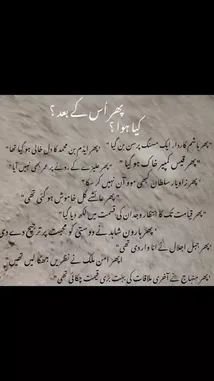 پھر اُس کے بعد ؟
کیا ہوا ؟
"پھر ہاشم کاردار ایک مسنگ پرسن بن گیا" "پھر ایڈم بن محمد کا دل خالی ہو گیا تھا"
"پھر قیس کمبیر خاک ہو گیا" "پھر علیزے کے رونے پر عمر بھی نہیں آیا"
"پھر زاویار سلطان کبھی موو آن نہیں کر سکا"
"پھر عائشے گل خاموش ہو گئی تھی"
"پھر قیامت تک کا انتظار وجدان کی قسمت میں لکھ دیا گیا"
"پھر ہارون شاہد نے دوستی کو محبت پر ترجیح دے دی
"پھر جبل اجلال نے انا وار دی تھی"
"پھر امن ملک نے نظریں جھکا لیں تھیں"
"پھر منہاج نے آخری ملاقات کی بہت بڑی قیمت چکائی تھی"